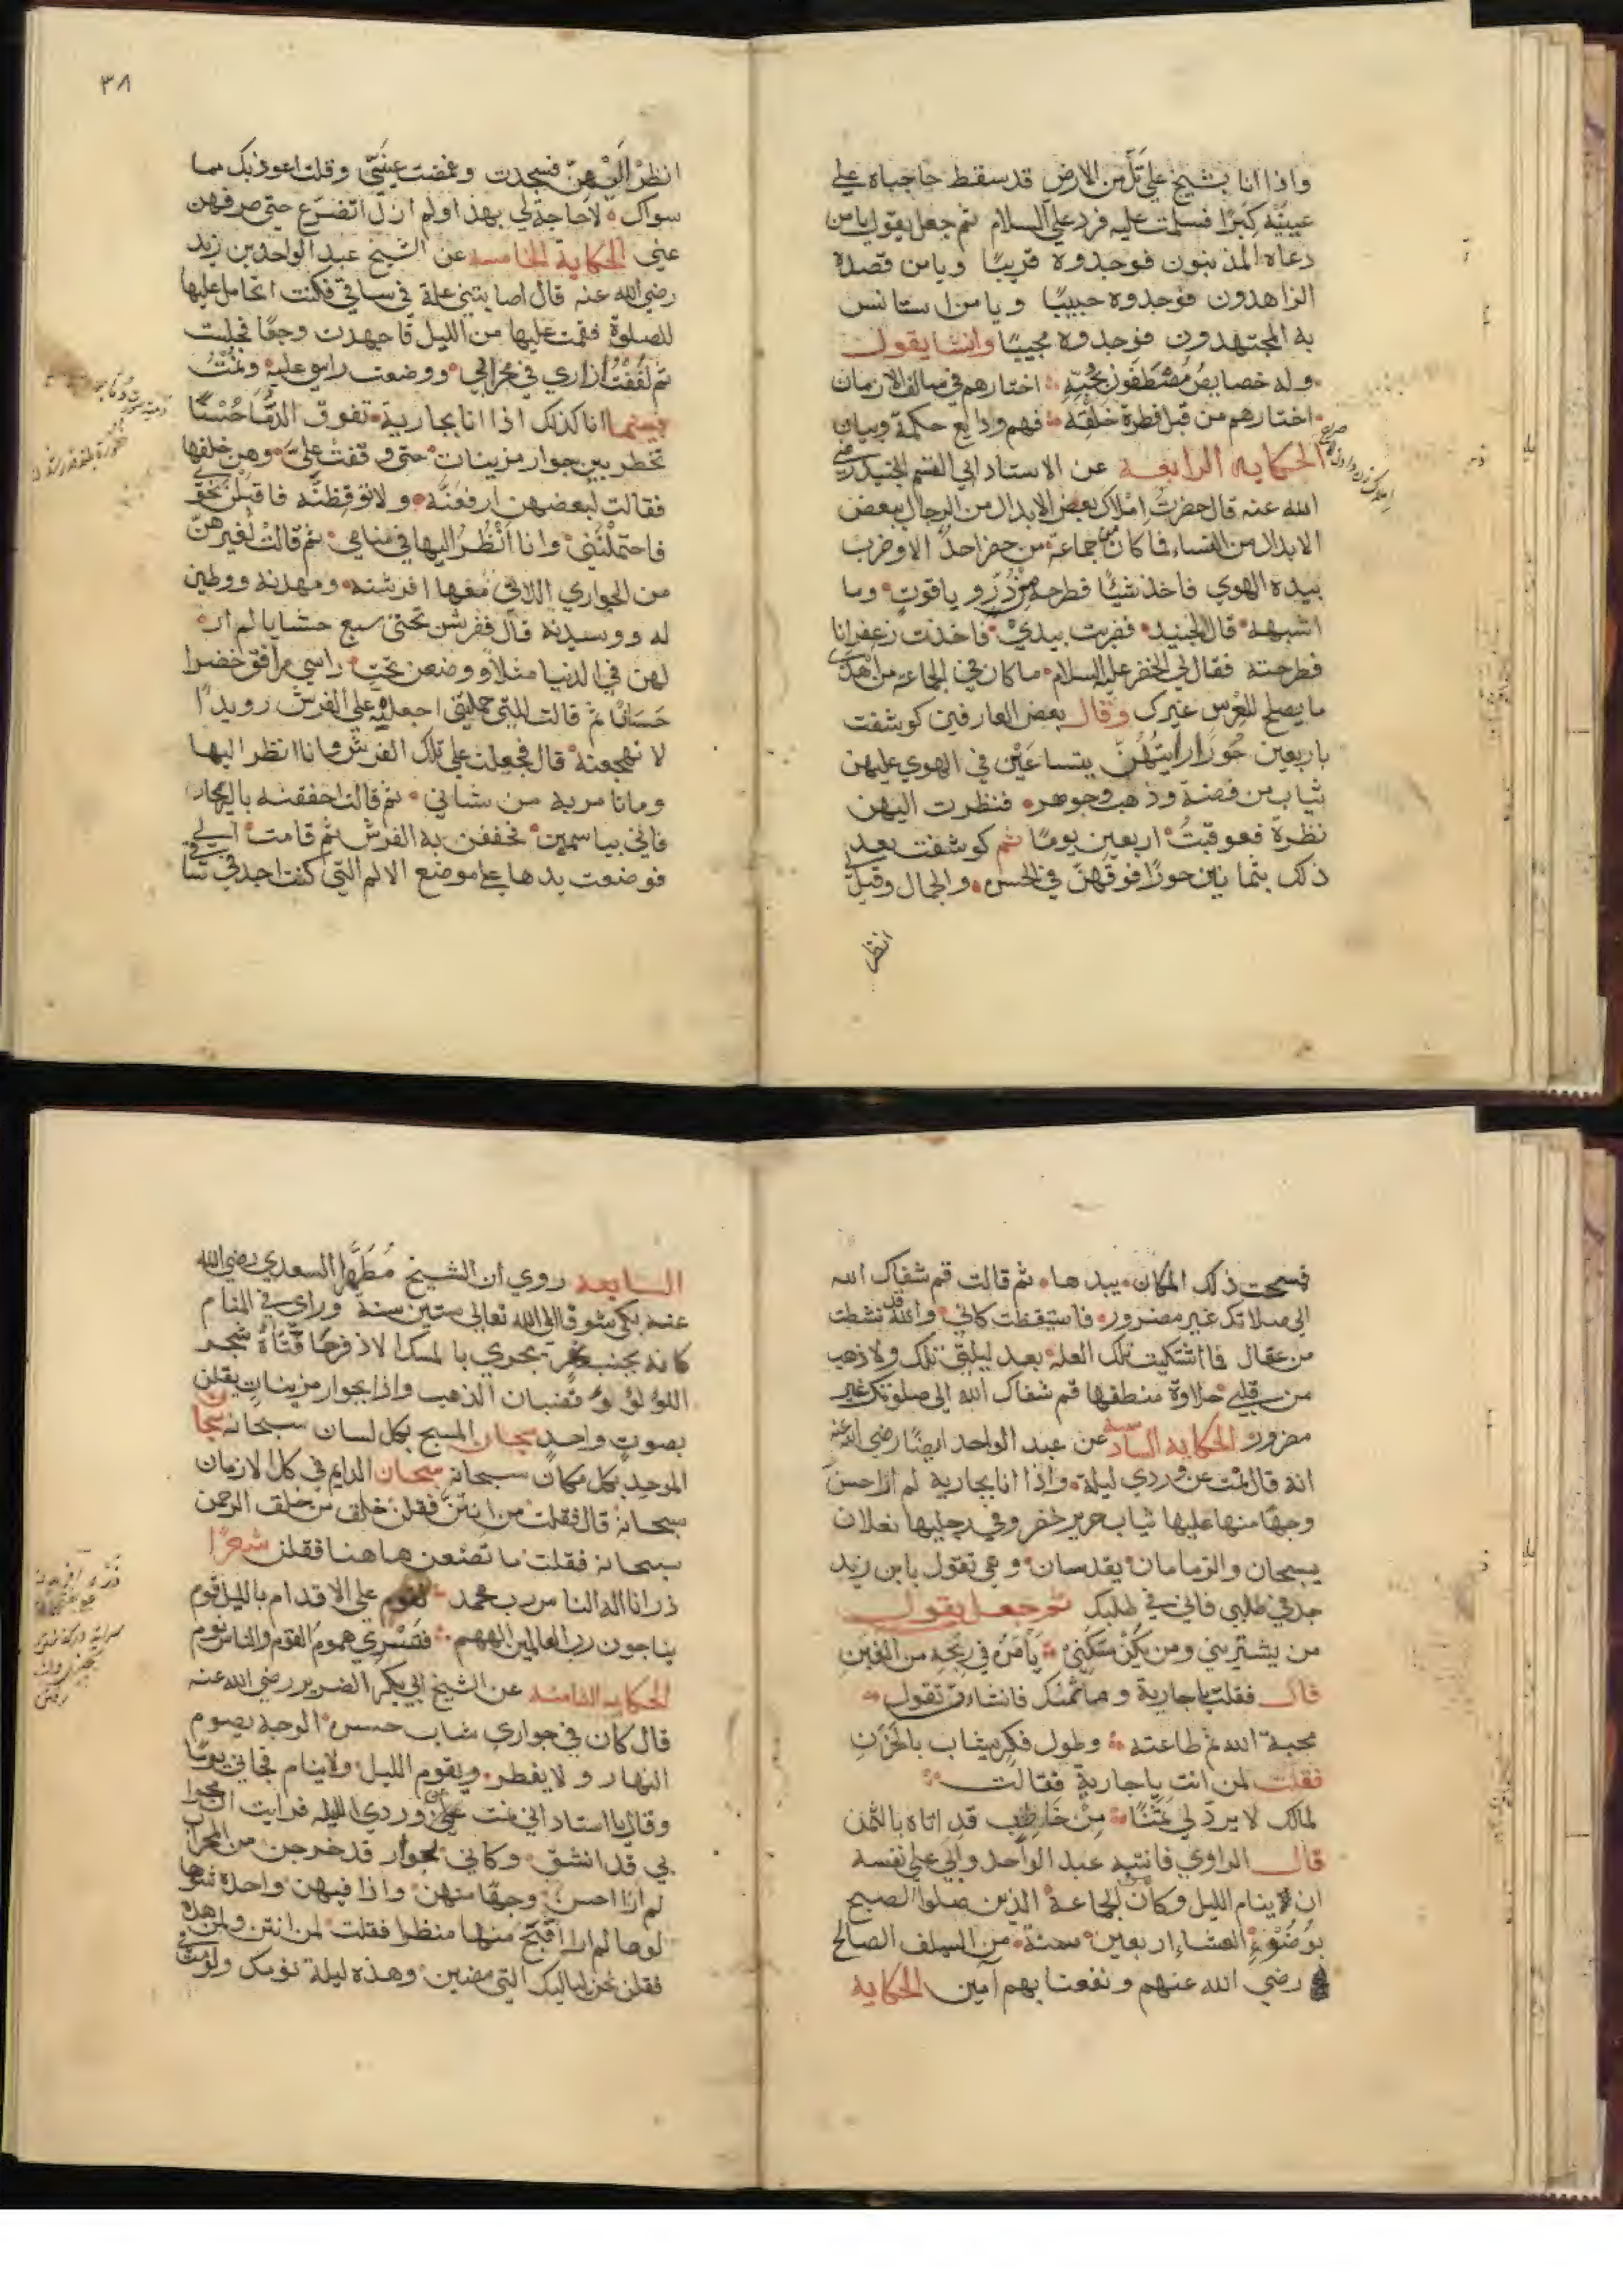 واذا انا بشيخ علي تل من الارض قد سقط حاجباه علي
عينيه كبرا فسلمت عليه فرد علي السلام ثم جعل يقول يا من
دعاه المذنبون فوجدوه قريبا ويا من قصده
الزاهدون فوجدوه حبيبا ويا من استانس
به المجتهدون فوجدوه مجيبا وانشا يقول
وله خصايص مصطفون بحبه اختارهم في سالف الازمان
اختارهم من قبل فطرة خلقه فهم ودايع حكمة وبيان
الحكايه الرابعه عن الاستاد ابي القسم الجنيد رضي
الله عنه قال حضرت املاك بعض الابدال من الرجال ببعض
الابدال من النساء فما كان من جماعة من حضر احد الا وضرب
بيده الهوي فاخذ شيئا فطرحه من در و ياقوت وما
اشبهه قال الجنيد فضربت بيدي فاخذت زعفرانا
فطرحته فقال لي الخضر عليه السلام ما كان في الجماعة من اهدي
ما يصلح للعرس غيرك وقال بعض العارفين كوشفت
باربعين حورا رايتهن يتساعين في الهوي عليهن
ثياب من فضة وذهب وجوهر فنظرت اليهن
نظرة فعوقبت اربعين يوما ثم كوشفت بعد
ذلك بثمانين حورا فوقهن في الحسن والجمال وقيل
انظر
٣٨
انظر اليهن فسجدت وغمضت عيني وقلت اعوذ بك مما
سواك لا حاجة لي بهذا ولم ازل اتضرع حتي صرفهن
عني الحكاية الخامسه عن الشيخ عبد الواحد بن زيد
رضي الله عنه قال اصابتني علة في ساقي فكنت اتحامل عليها
للصلوة فقمت عليها من الليل فاجهدت وجعا فجلست
ثم لففت ازاري في محرابي ووضعت راسي عليه ونمت
فبينما انا كذلك اذا انا بجارية تفوق الدما حسنا
تخطر بين جوار مزينات حتي وقفت علي وهن خلفها
فقالت لبعضهن ارفعنه ولا توقظنه فاقبلن نحوي
فاحتملنني وانا انظر اليها في منامي ثم قالت لغيرهن
من الجواري اللاتي معها افرشنه ومهدنه ووطين
له ووسدنه قال ففرشن تحتي سبع حشايا لم ار
لهن في الدنيا مثلا ووضعن تحت راسي مرافق خضرا
حسانا ثم قالت للتي حملتني اجعلنه علي الفرش رويدا
لا تهجعنه قال فجعلت علي تلك الفرش وانا انظر اليها
وما تامر به من شاني ثم قالت احففنه بالريحان
فاتي بياسمين فحففن به الفرش ثم قامت الي
فوضعت يدها علي موضع الالم التي كنت اجد في ساقي
فمسحت ذلك المكان بيدها ثم قالت قم شفاك الله
الي صلاتك غير مضرور فاستيقظت كاني والله قد نشطت
من عقال فما اشتكيت تلك العلة بعد ليلتي تلك ولا ذهب
من قلبي حلاوة منطقها قم شفاك الله الي صلوتك غير
مضرور الحكايه السادسه عن عبد الواحد ايضا رضي الله عنه
انه قال نمت عن وردي ليلة واذا انا بجارية لم ار احسن
وجها منها عليها ثياب حرير خضر وفي رجليها نعلان
يسبحان والزمامان يقدسان وهي تقول يا ابن زيد
جد في طلبي فاني في طلبك ثم جعل يقول
من يشتريني ومن يكن سكني يامن في ربحه من الغبن
قال فقلت يا جارية وما ثمنك فانشات تقول
محبة الله ثم طاعته وطول فكر يشاب بالحزن
فقلت لمن انت يا جارية فقالت
لمالك لا يرد لي ثمنا من خاطب قد اتاه بالثمن
قال الراوي فانتبه عبد الواحد والي علي نفسه
ان لا ينام الليل وكان من الجماعة الذين صلوا الصبح
بوضوء العشاء اربعين سنة من السلف الصالح
رضي الله عنهم ونفعنا بهم امين الحكايه
السابعه روي ان الشيخ مطهرا السعدي رضي الله
عنه بكي شوقا الي الله تعالي ستين سنة وراي في المنام
كانه بجنب نهر تجري بالمسك الاذفر حافتاه شجر
اللؤلؤ وقضبان الذهب واذا بجوار مزينات يقلن
بصوت واحد سبحان المسبح بكل لسان سبحانه سبحان
الموحد بكل مكان سبحانه سبحان الدايم في كل الازمان
سبحانه قال فقلت من انتن فقلن خلق من خلق الرحمن
سبحانه فقلت ما تصنعن هاهنا فقلن شعرا
ذرانا اله الناس رب محمد لقوم علي الاقدام بالليل قوم
يناجون رب العالمين الههم فتسري هموم القوم والناس نوم
الحكايه الثامنه عن الشيخ ابي بكر الضرير رضي الله عنه
قال كان في جواري شاب حسن الوجه يصوم
النهار ولا يفطر ويقوم الليل ولا ينام فجاني يوما
وقال يا استاد اني نمت عن وردي الليله فرايت كان محرا
بي قد انشق وكاني بجوار قد خرجن من المحراب
لم ار احسن وجها منهن واذا فيهن واحدة شوها
لم ار اقبح منها منظرا فقلت لمن انتن ولمن هذه
فقلن نحن لياليك التي مضين وهذه ليلة نومك ولو مت في